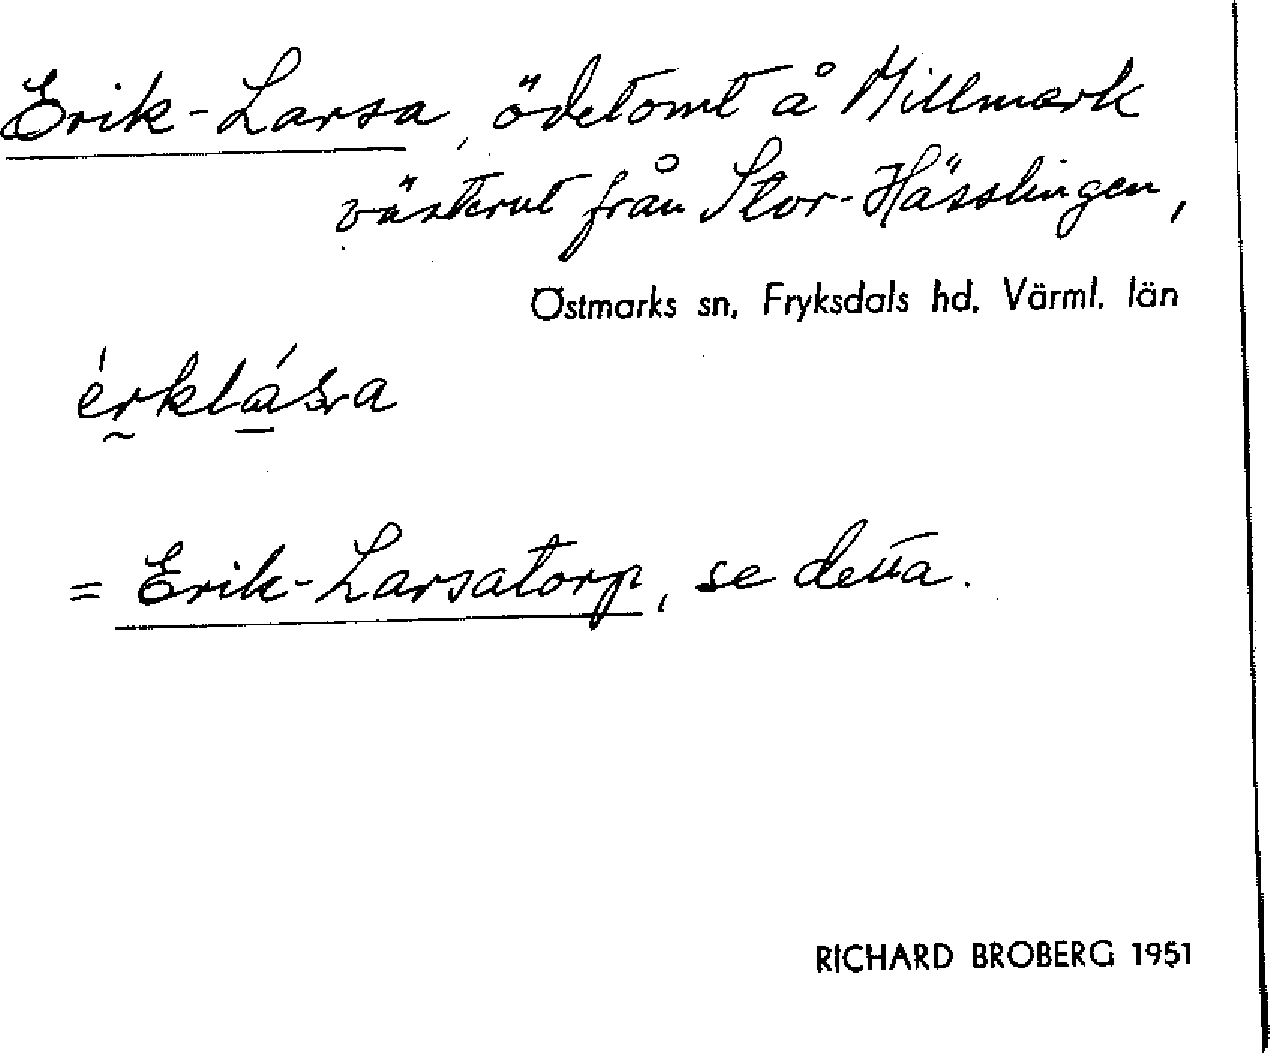 Erik-Larsa, ödetomt å Millmark
västerut från Stor-Hässlingen,
Östmarks sn, Fryksdals hd. Värml. län
= Erik-Larsatorp, se detta.
RICHARD BROBERG 1951